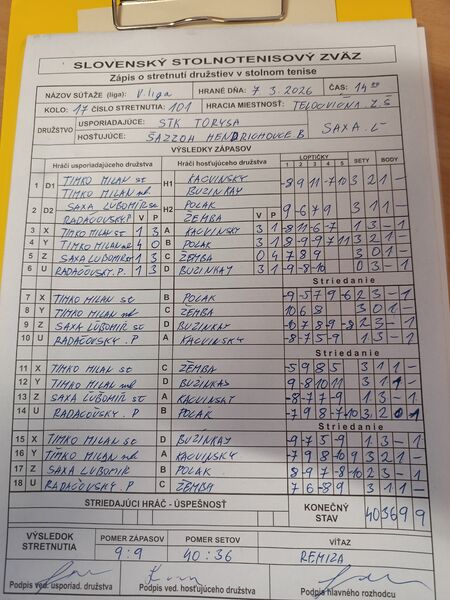 SLOVENSKÝ STOLNOTENISOVÝ ZVÄZ
Zápis o stretnutí družstiev v stolnom tenise
NÁZOV SÚŤAŽE (liga): V. liga HRANÉ DŇA: 7 3. 2026 ČAS: 14 00
KOLO: 17 ČÍSLO STRETNUTIA: 101 HRACIA MIESTNOSŤ: TELOCVIČNA Z.Š
DRUŽSTVO
USPORIADAJÚCE: STK TORYSA
HOSŤUJÚCE: ŠAZZOM HENDRICHOVCE B SAXA. Ľ
VÝSLEDKY ZÁPASOV
Hráči usporiadajúceho družstva Hráči hosťujúceho družstva LOPTIČKY 1 2 3 4 5 SETY BODY
1 D1 TIMKO MILAN st H1 KACVINSKÝ -8 9 11 -7 10 3 2 1 -
TIMKO MILAN ml BUZINKAY
2 D2 SAXA ĽUBOMÍR st H2 POLAK 9 -6 7 9 3 1 1 -
RADAČOVSKÝ. P V P ŽEMBA V P
3 X TIMKO MILAN st 1 3 A KACVINSKÝ 3 1 -8 11 -6 -7 1 3 - 1
4 Y TIMKO MILAN ml 4 0 B POLAK 3 1 8 -9 -9 7 11 3 2 1 -
5 Z SAXA ĽUBOMÍR st 1 3 C ŽEMBA 0 4 7 8 9 3 0 1 -
6 U RADAČOVSKÝ. P. 1 3 D BUZINKAY 3 1 -9 -8 -10 0 3 - 1
Striedanie
7 X TIMKO MILAN st B POLAK -9 -5 7 9 -6 2 3 - 1
8 Y TIMKO MILAN ml C ŽEMBA 10 6 8 3 0 1 -
9 Z SAXA ĽUBOMÍR st D BUZINKAY -10 7 8 -9 -8 2 3 - 1
10 U RADAČOVSKÝ. P A KACVINSKÝ -8 -7 5 -9 1 3 - 1
Striedanie
11 X TIMKO MILAN st C ŽEMBA -5 9 8 5 3 1 1 -
12 Y TIMKO MILAN ml D BUZINKAS 9 -8 10 11 3 1 1 -
13 Z SAXA ĽUBOMÍR st A KACVINSKÝ -8 -7 7 -9 1 3 - 1
14 U RADAČOVSKÝ. P B POLAK -7 9 8 -7 -10
Striedanie
15 X TIMKO MILAN st D BUZINKAY -9 -7 5 -9 1 3 - 1
16 Y TIMKO MILAN ml A KACVINSKÝ -7 9 8 -10 9 3 2 1 -
17 Z SAXA ĽUBOMÍR B POLAK 8 -9 7 -8 -10 2 3 - 1
18 U RADAČOVSKÝ. P C ŽEMBA 7 6 -8 9 3 1 1 -
STRIEDAJÚCI HRÁČ - ÚSPEŠNOSŤ KONEČNÝ STAV 40 36 9 9
VÝSLEDOK STRETNUTIA POMER ZÁPASOV POMER SETOV VÍŤAZ
9 : 9 40 : 36 REMÍZA
Podpis ved. usporiad. družstva Podpis ved. hosťujúceho družstva Podpis hlavného rozhodcu